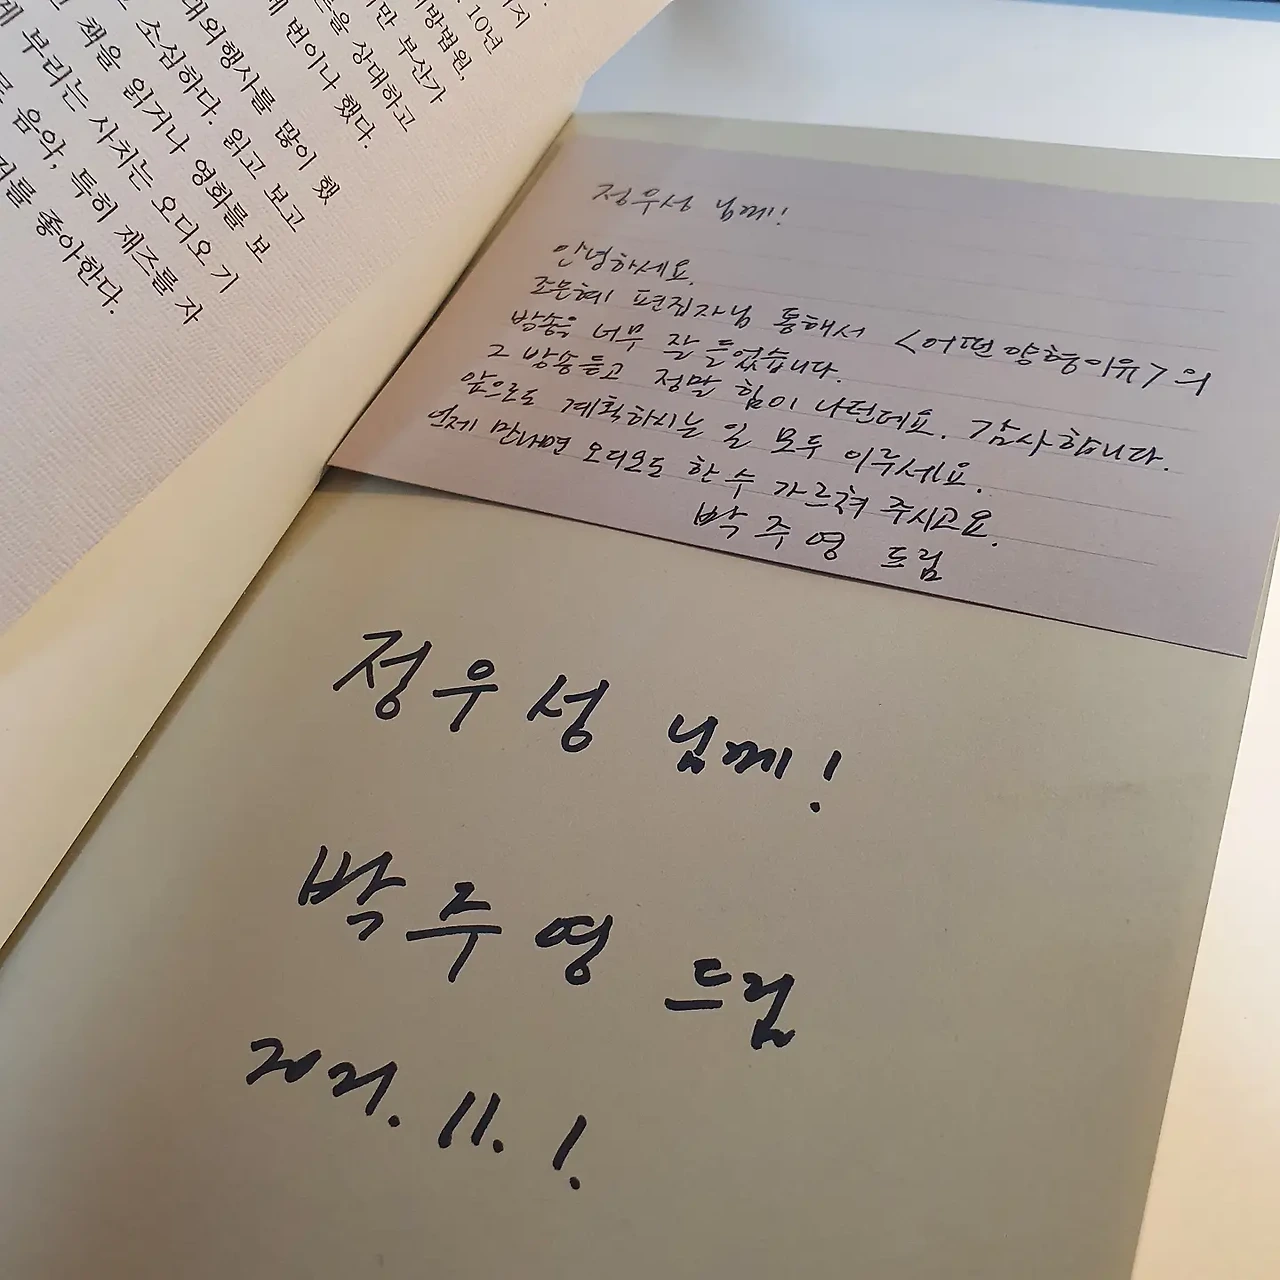 지
10년
방법원,
만 부산가
을 상대하고
번이나 했다.
대외행사를 많이 했
소심하다. 읽고 보고
책을 읽거나 영화를 보
부리는 사치는 오디오 기
음악, 특히 재즈를 자
를 좋아한다.
정우성 님께!
안녕하세요.
조은혜 편집자님 통해서 <어떤 양형이유>의
방송을 너무 잘 들었습니다.
그 방송듣고 정말 힘이 나던데요. 감사합니다.
앞으로도 계획하시는 일 모두 이루세요.
언제 만나면 오디오도 한 수 가르쳐 주시고요.
박주영 드림
정우성 님께!
박주영 드림
2021. 11. 1.